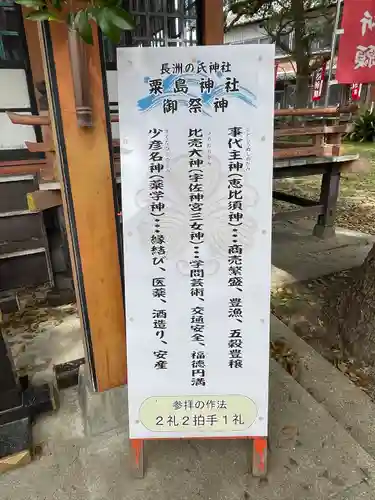 長洲の氏神社
粟島神社
御祭神
事代主神（恵比須神）…商売繁盛、豊漁、五穀豊穣
比売大神（宇佐神宮三女神）…学問芸術、交通安全、福徳円満
少彦名神（薬学神）…縁結び、医薬、酒造り、安産
参拝の作法
2礼2拍手1礼
祈